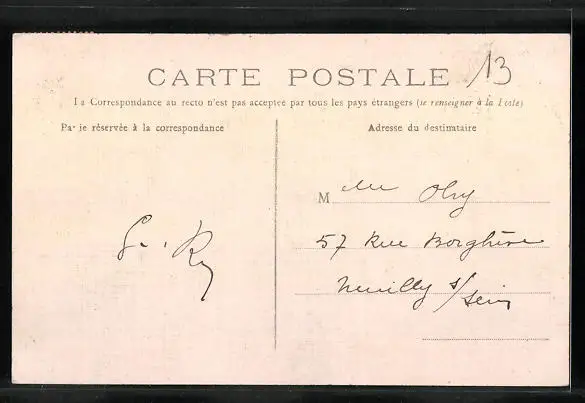 CARTE POSTALE 13
La Correspondance au recto n'est pas acceptée par tous les pays étrangers (se renseigner à la Poste)
Partie réservée à la correspondance
Adresse du destinataire
M
57 Rue Borghèse
Neuilly s/ Seine